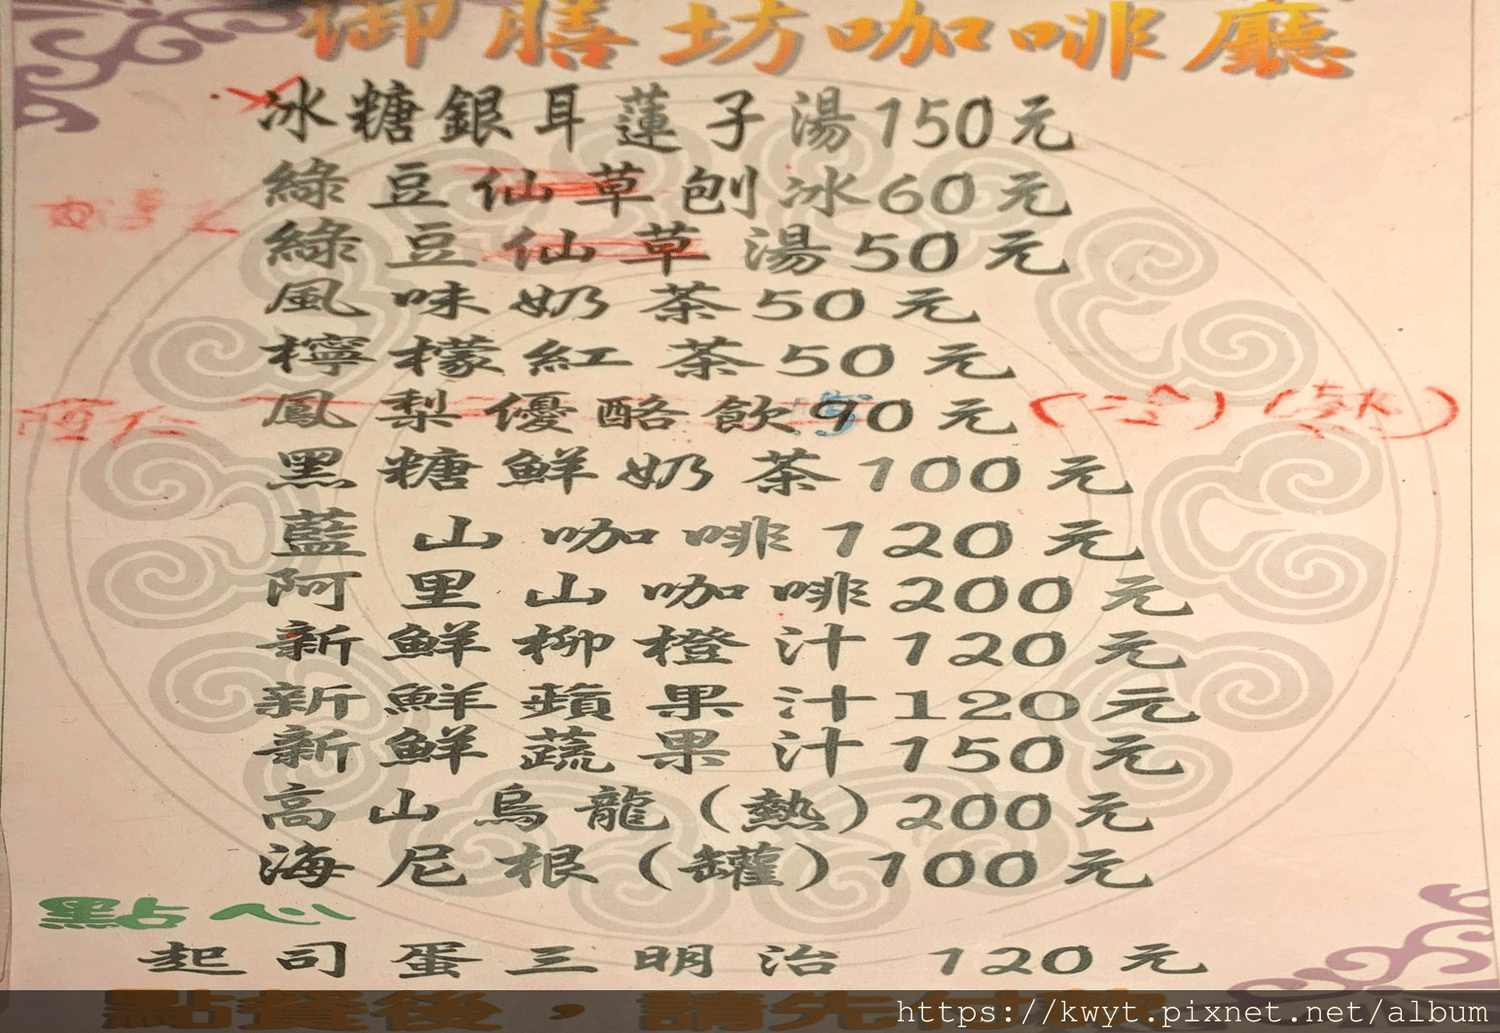 御膳坊咖啡廳
冰糖銀耳蓮子湯150元
綠豆仙草刨冰60元
綠豆仙草湯50元
風味奶茶50元
檸檬紅茶50元
鳳梨優酪飲90元(冷)(熱)
黑糖鮮奶茶100元
藍山咖啡120元
阿里山咖啡200元
新鮮柳橙汁120元
新鮮蘋果汁120元
新鮮蔬果汁150元
高山烏龍(熱)200元
海尼根(罐)100元
點心
起司蛋三明治 120元
點餐後，請先付款
https://kwyt.pixnet.net/album